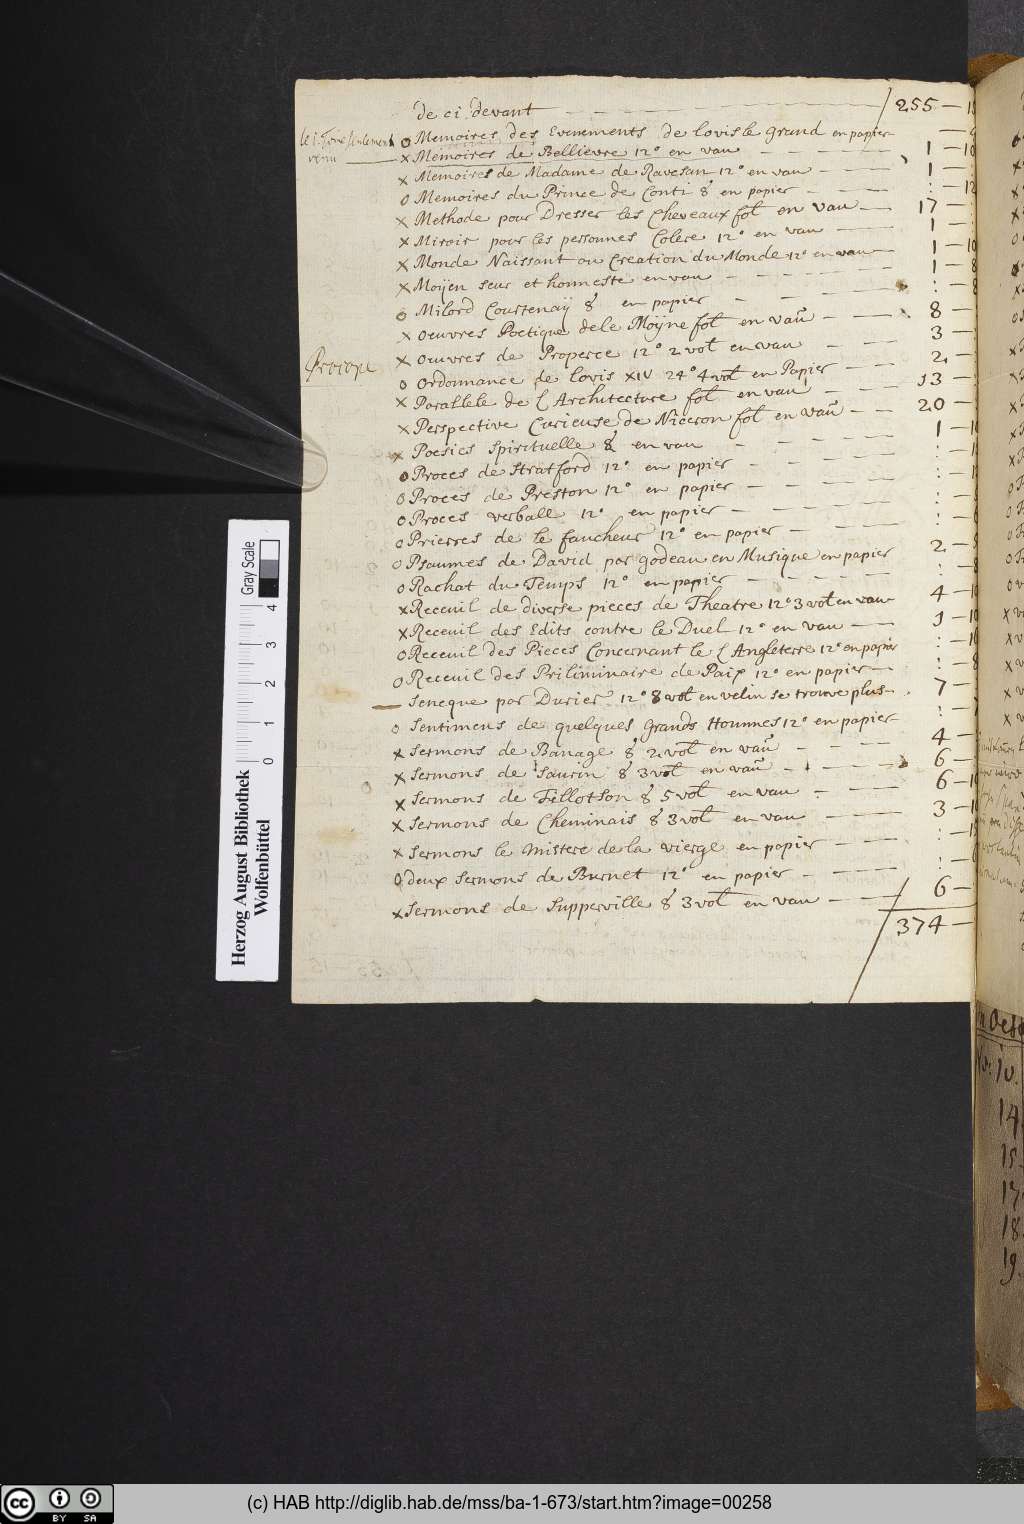 de ci devant — 255 — 1
le 1. Tome seulement
venu
o Memoires des Evenements de Lovis le grand en papier —
x Memoires de Bellievre 12° en vau — 1 — 10
x Memoires de Madame de Ravesan 12° en vau — 1 —
o Memoires du Prince de Conti 8° en papier — : — 12
x Methode pour Dresser les Cheveaux fol en vau — 17 —
x Miroir pour les personnes Colere 12° en vau — 1 —
x Monde Naissant ou Creation du Monde 12° en vau — 1 — 10
x Moyen seur et honneste en vau — 1 — 8
o Milord Courtenaÿ 8° en papier — : — 8
x oeuvres Poetique de le Moÿne fol en vau — 8 —
Procope
x oeuvres de Properce 12° 2 vol en vau — 3 —
o ordonnance de Lovis XIV 24° 4 vol en Papier — 2 —
x Parallele de l'Architecture fol en vau — 13 —
x Perspective Curieuse de Niceron fol en vau — 20 —
x Poesies Spirituelle 8° en vau — 1 — 1
o Proces de Stratford 12° en papier — : —
o Proces de Preston 12° en papier — : —
o Proces verball 12° en papier — : —
o Prierres de le faucheur 12° en papier — : —
o Psaumes de David par godeau en Musique en papier 2 —
o Rachat du Temps 12° en papier — : — 8
x Receuil de diverse pieces de Theatre 12° 3 vol en vau 4 — 10
x Receuil des Edits contre le Duel 12° en vau — 1 — 10
o Receuil des Pieces Concernant le l'Angleterre 12° en papier : — 16
o Receuil des Priliminaire de Paix 12° en papier — : — 8
— Seneque par Durier 12° 8 vol en velin se trouve plus — 7 —
o Sentimens de quelques Grands Hommes 12° en papier : —
x Sermons de Banage 8° 2 vol en vau — 4 —
x Sermons de Saurin 8° 3 vol en vau — 6 —
x Sermons de Tillotson 8° 5 vol en vau — 6 — 1
x Sermons de Cheminais 8° 3 vol en vau — 3 — 1
x Sermons le Mistere de la vierge en papier — : — 15
o deux Sermons de Burnet 12° en papier — : —
x Sermons de Supperville 8° 3 vol en vau — 6 —
374 —
Herzog August Bibliothek
Wolfenbüttel
Gray Scale
0 1 2 3 4
n Oest
14
15
17
18
19
CC BY SA
(c) HAB http://diglib.hab.de/mss/ba-1-673/start.htm?image=00258